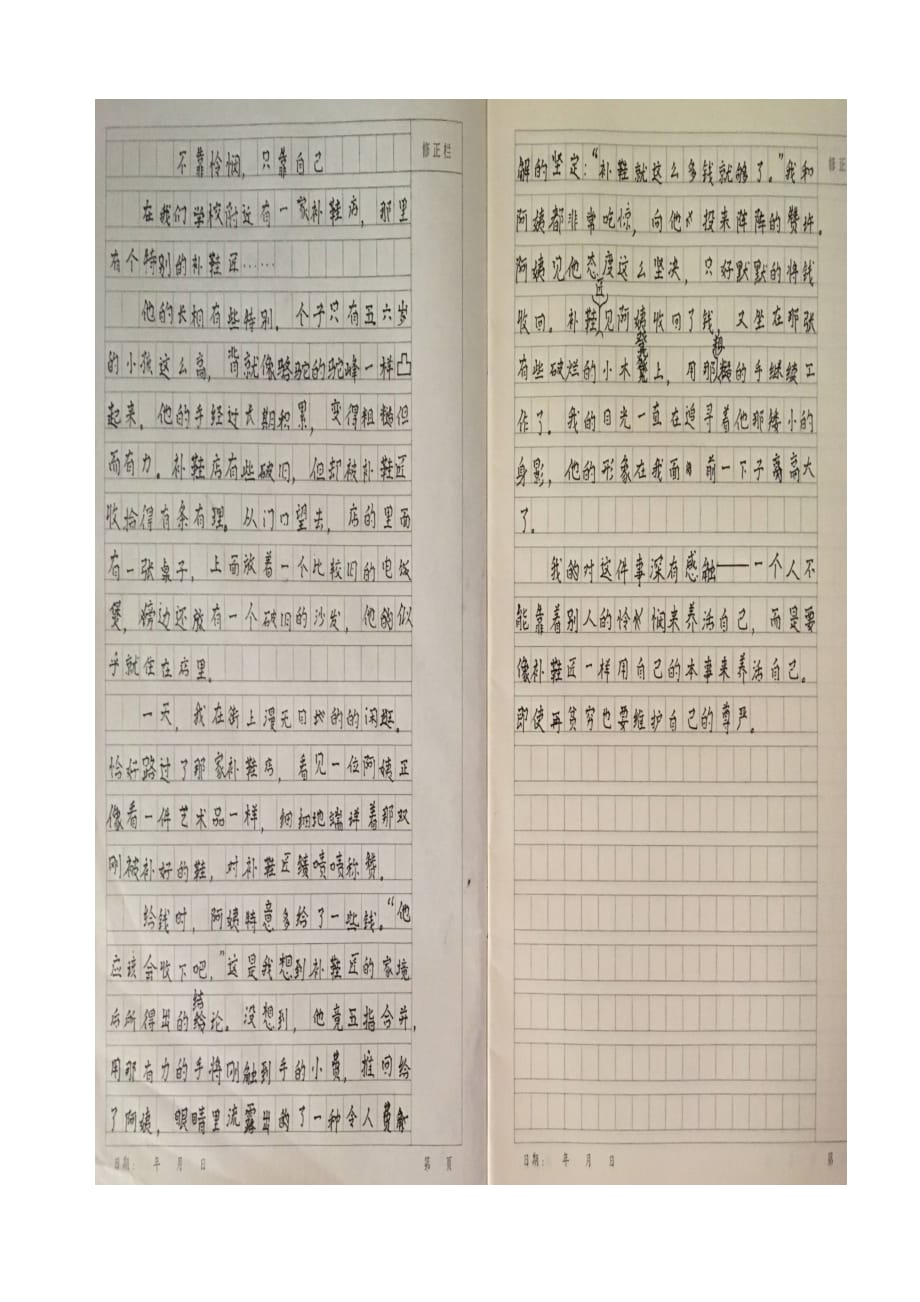 修正栏
不靠怜悯，只靠自己
在我们学校附近有一家补鞋店，那里
有个特别的补鞋匠……
他的长相有些特别。个子只有五六岁
的小孩这么高，背就像骆驼的驼峰一样凸
起来。他的手经过长期积累，变得粗糙但
而有力。补鞋店有些破旧，但却被补鞋匠
收拾得有条有理。从门口望去，店的里面
有一张桌子，上面放着一个比较旧的电饭
煲，旁边还放有一个破旧的沙发，他的似
乎就住在店里。
一天，我在街上漫无目地的的闲逛。
恰好路过了那家补鞋店，看见一位阿姨正
像看一件艺术品一样，细细地端详着那双
刚被补好的鞋，对补鞋匠啧啧称赞。
给钱时，阿姨特意多给了一些钱。“他
应该会收下吧，”这是我想到补鞋匠的家境
后所得出的结论。没想到，他竟五指合并，
用那有力的手将刚触到手的小费，推回给
了阿姨，眼睛里流露出的了一种令人费
日期： 年 月 日 第 页
修正
解的坚定：“补鞋就这么多钱就够了。”我和
阿姨都非常吃惊，向他投来阵阵的赞许。
阿姨见他态度这么坚决，只好默默的将钱
收回。补鞋匠见阿姨收回了钱，又坐在那张
有些破烂的小木凳上，用那粗糙的手继续工
作了。我的目光一直在追寻着他那矮小的
身影，他的形象在我面前一下子高大
了。
我的对这件事深有感触——一个人不
能靠着别人的怜悯来养活自己，而是要
像补鞋匠一样用自己的本事来养活自己。
即使再贫穷也要维护自己的尊严。
日期： 年 月 日 第